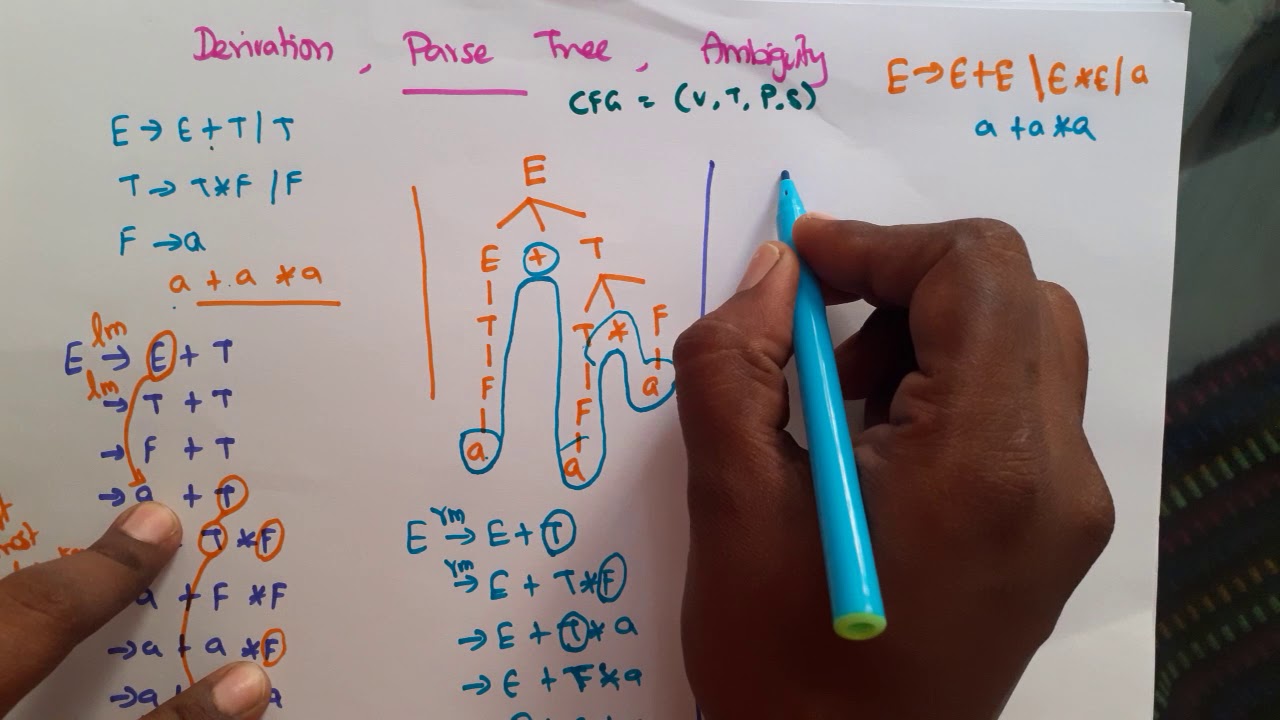 Derivation, Parse Tree, Ambiguity
CFG = (V, T, P, S)
E → E + E | E * E | a
a + a * a
E → E + T | T
T → T * F | F
F → a
a + a * a
lm
E → E + T
lm
→ T + T
→ F + T
→ a + T
T * F
a + F * F
→ a + a * F
→ a
a
E
E + T
T T * F
F F a
a a
rm
E → E + T
rm
→ E + T * F
→ E + T * a
→ E + F * a